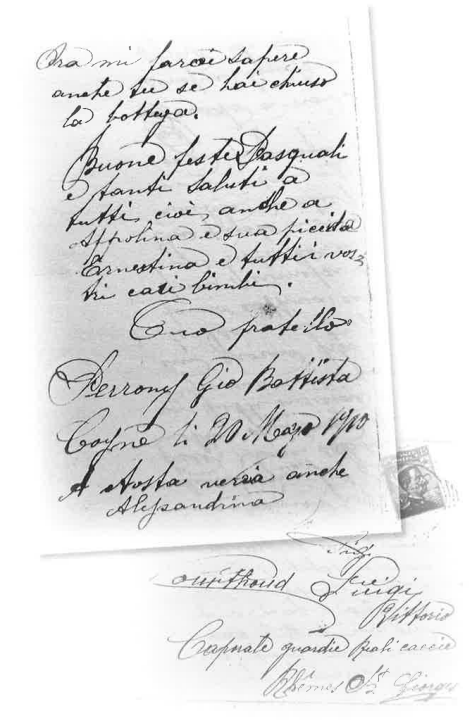 Ora mi farai sapere
anche tu se hai chiuso
la bottega.
Buone feste Pasquali
e tanti saluti a
tutti, cioè, anche a
Appolina e sua piccola
Ernestina e tutti i vos-
tri cari bimbi.
Tuo fratello
Perrony Gio Battista
Cogne li 20 Marzo 1910
A Aosta verrà anche
Alessandrina
Sig.
Luigi
Vittorio
Caporale guardie Reali caccie
Rhêmes St Georges